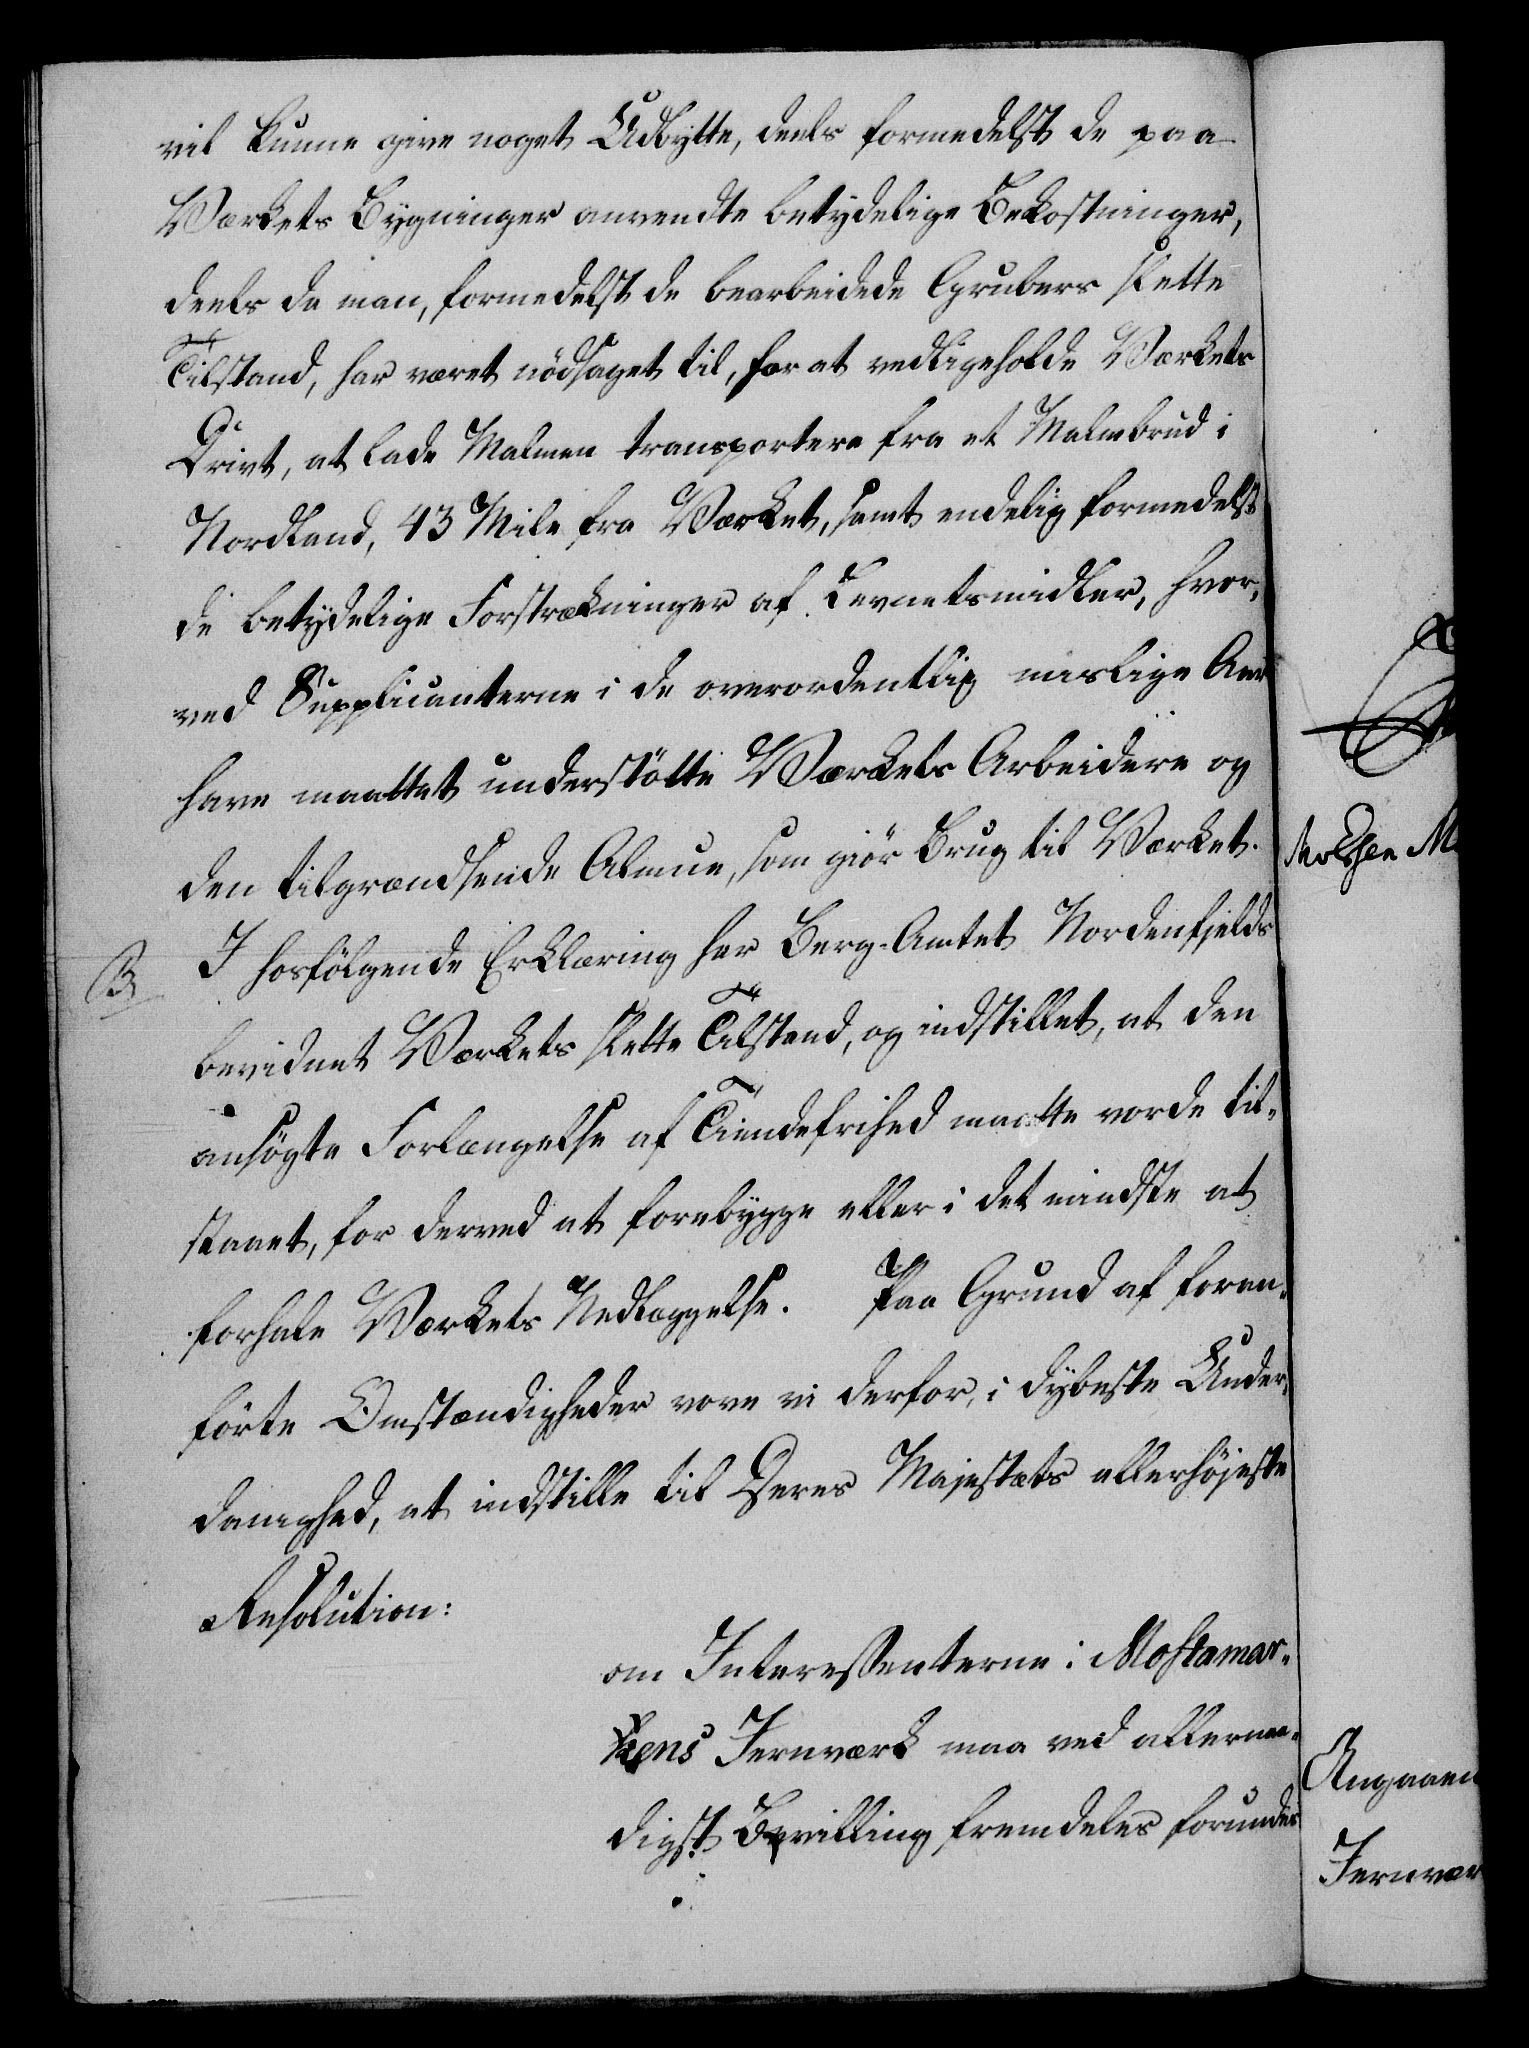 vil kunne give noget Udbytte, deels formedelst de paa
Værkets Bygninger anvendte betydelige Bekostninger,
deels da man, formedelst de bearbeidede Grubers slette
Tilstand, har været nödsaget til, for at vedligeholde Værkets
Drivt, at lade Malmen transportere fra et Malmbrud i
Nordland, 43 Mile fra Værket, samt endelig formedelst
de betydelige Forstrækninger af Levnetsmidler, hvor-
ved Supplicanterne i de overordentlig mislige Aar
have maattet understötte Værkets Arbeidere og
den tilgrændsende Almue, som giör Brug til Værket.
B I hosfölgende Erklæring har Berg-Amtet Nordenfjelds
bevidnet Værkets slette Tilstand, og indstillet, at den
ansögte Forlængelse af Tiendefrihed maatte vorde til-
staaet, for derved at forebygge eller i det mindste at
forhale Værkets Nedlæggelse. Paa Grund af foran-
förte Omstændigheder vove vi derfor, i dybeste Under-
danighed, at indstille til Deres Majestæts allerhöjeste
Resolution:
om Interessenterne i Mostamar-
kens Jernværk maa ved allernaa-
digst Bevilling fremdeles forundes
Angaaen
Jernvær